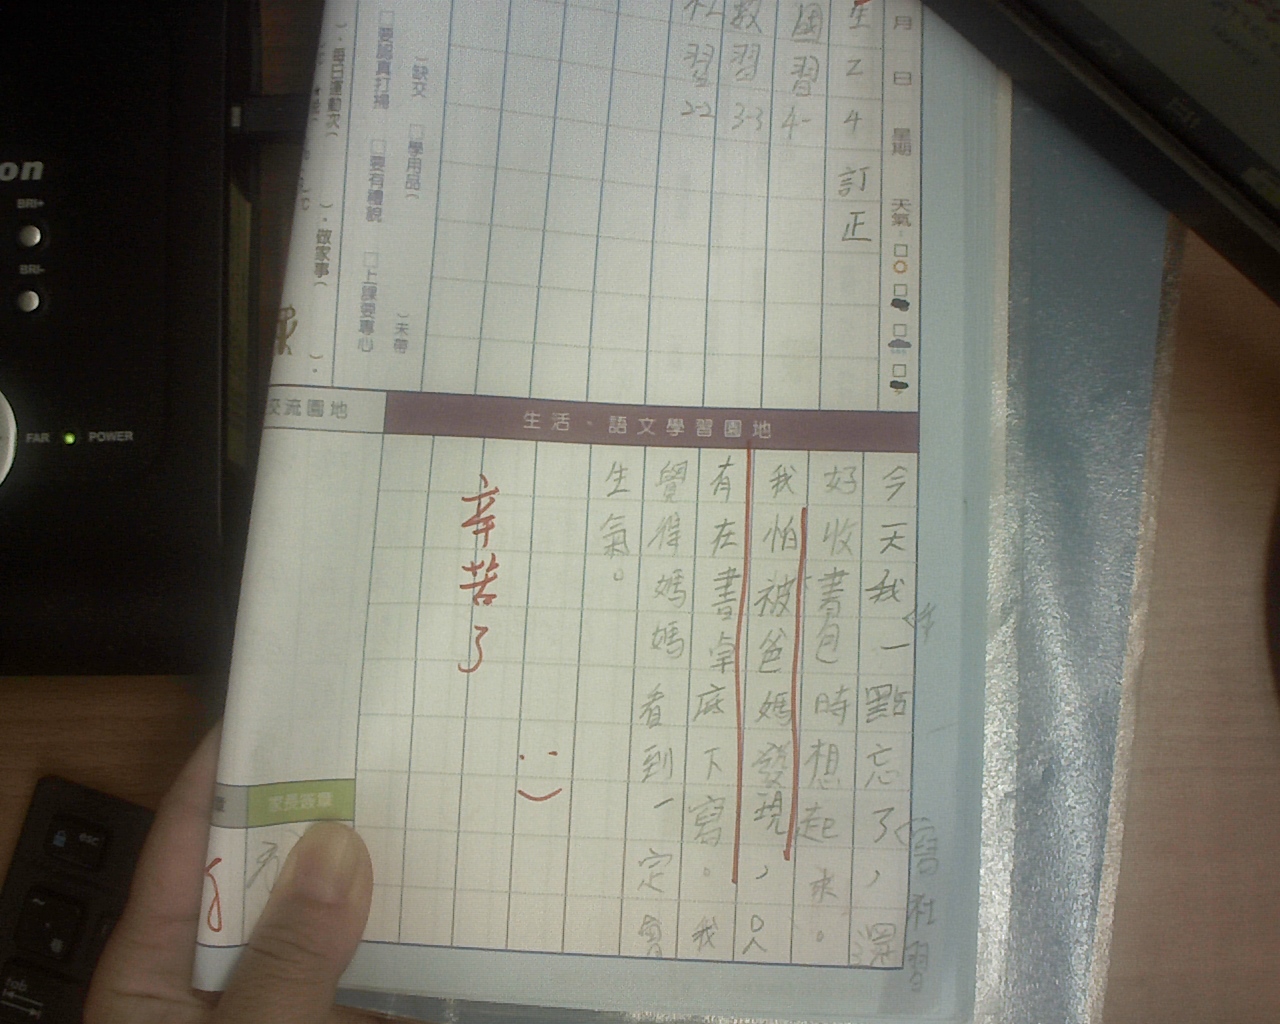 月 日 星期 天氣:
生 Z 4 訂正
國習 4-
數習 3-3
社習 2-2
)缺交 □學用品( )未帶
□要認真打掃 □要有禮貌 □上課要專心
).每日運動次( ).做家事( ).
生活、語文學習園地
交流園地
今天我一點忘了,還
件
寫社習
好收書包時想起來。
我怕被爸媽發現,只
有在書桌底下寫。我
覺得媽媽看到一定會
生氣。
辛苦了
:)
家長簽章
章
on
BRI+
BRI-
FAR
POWER
esc
~
tab